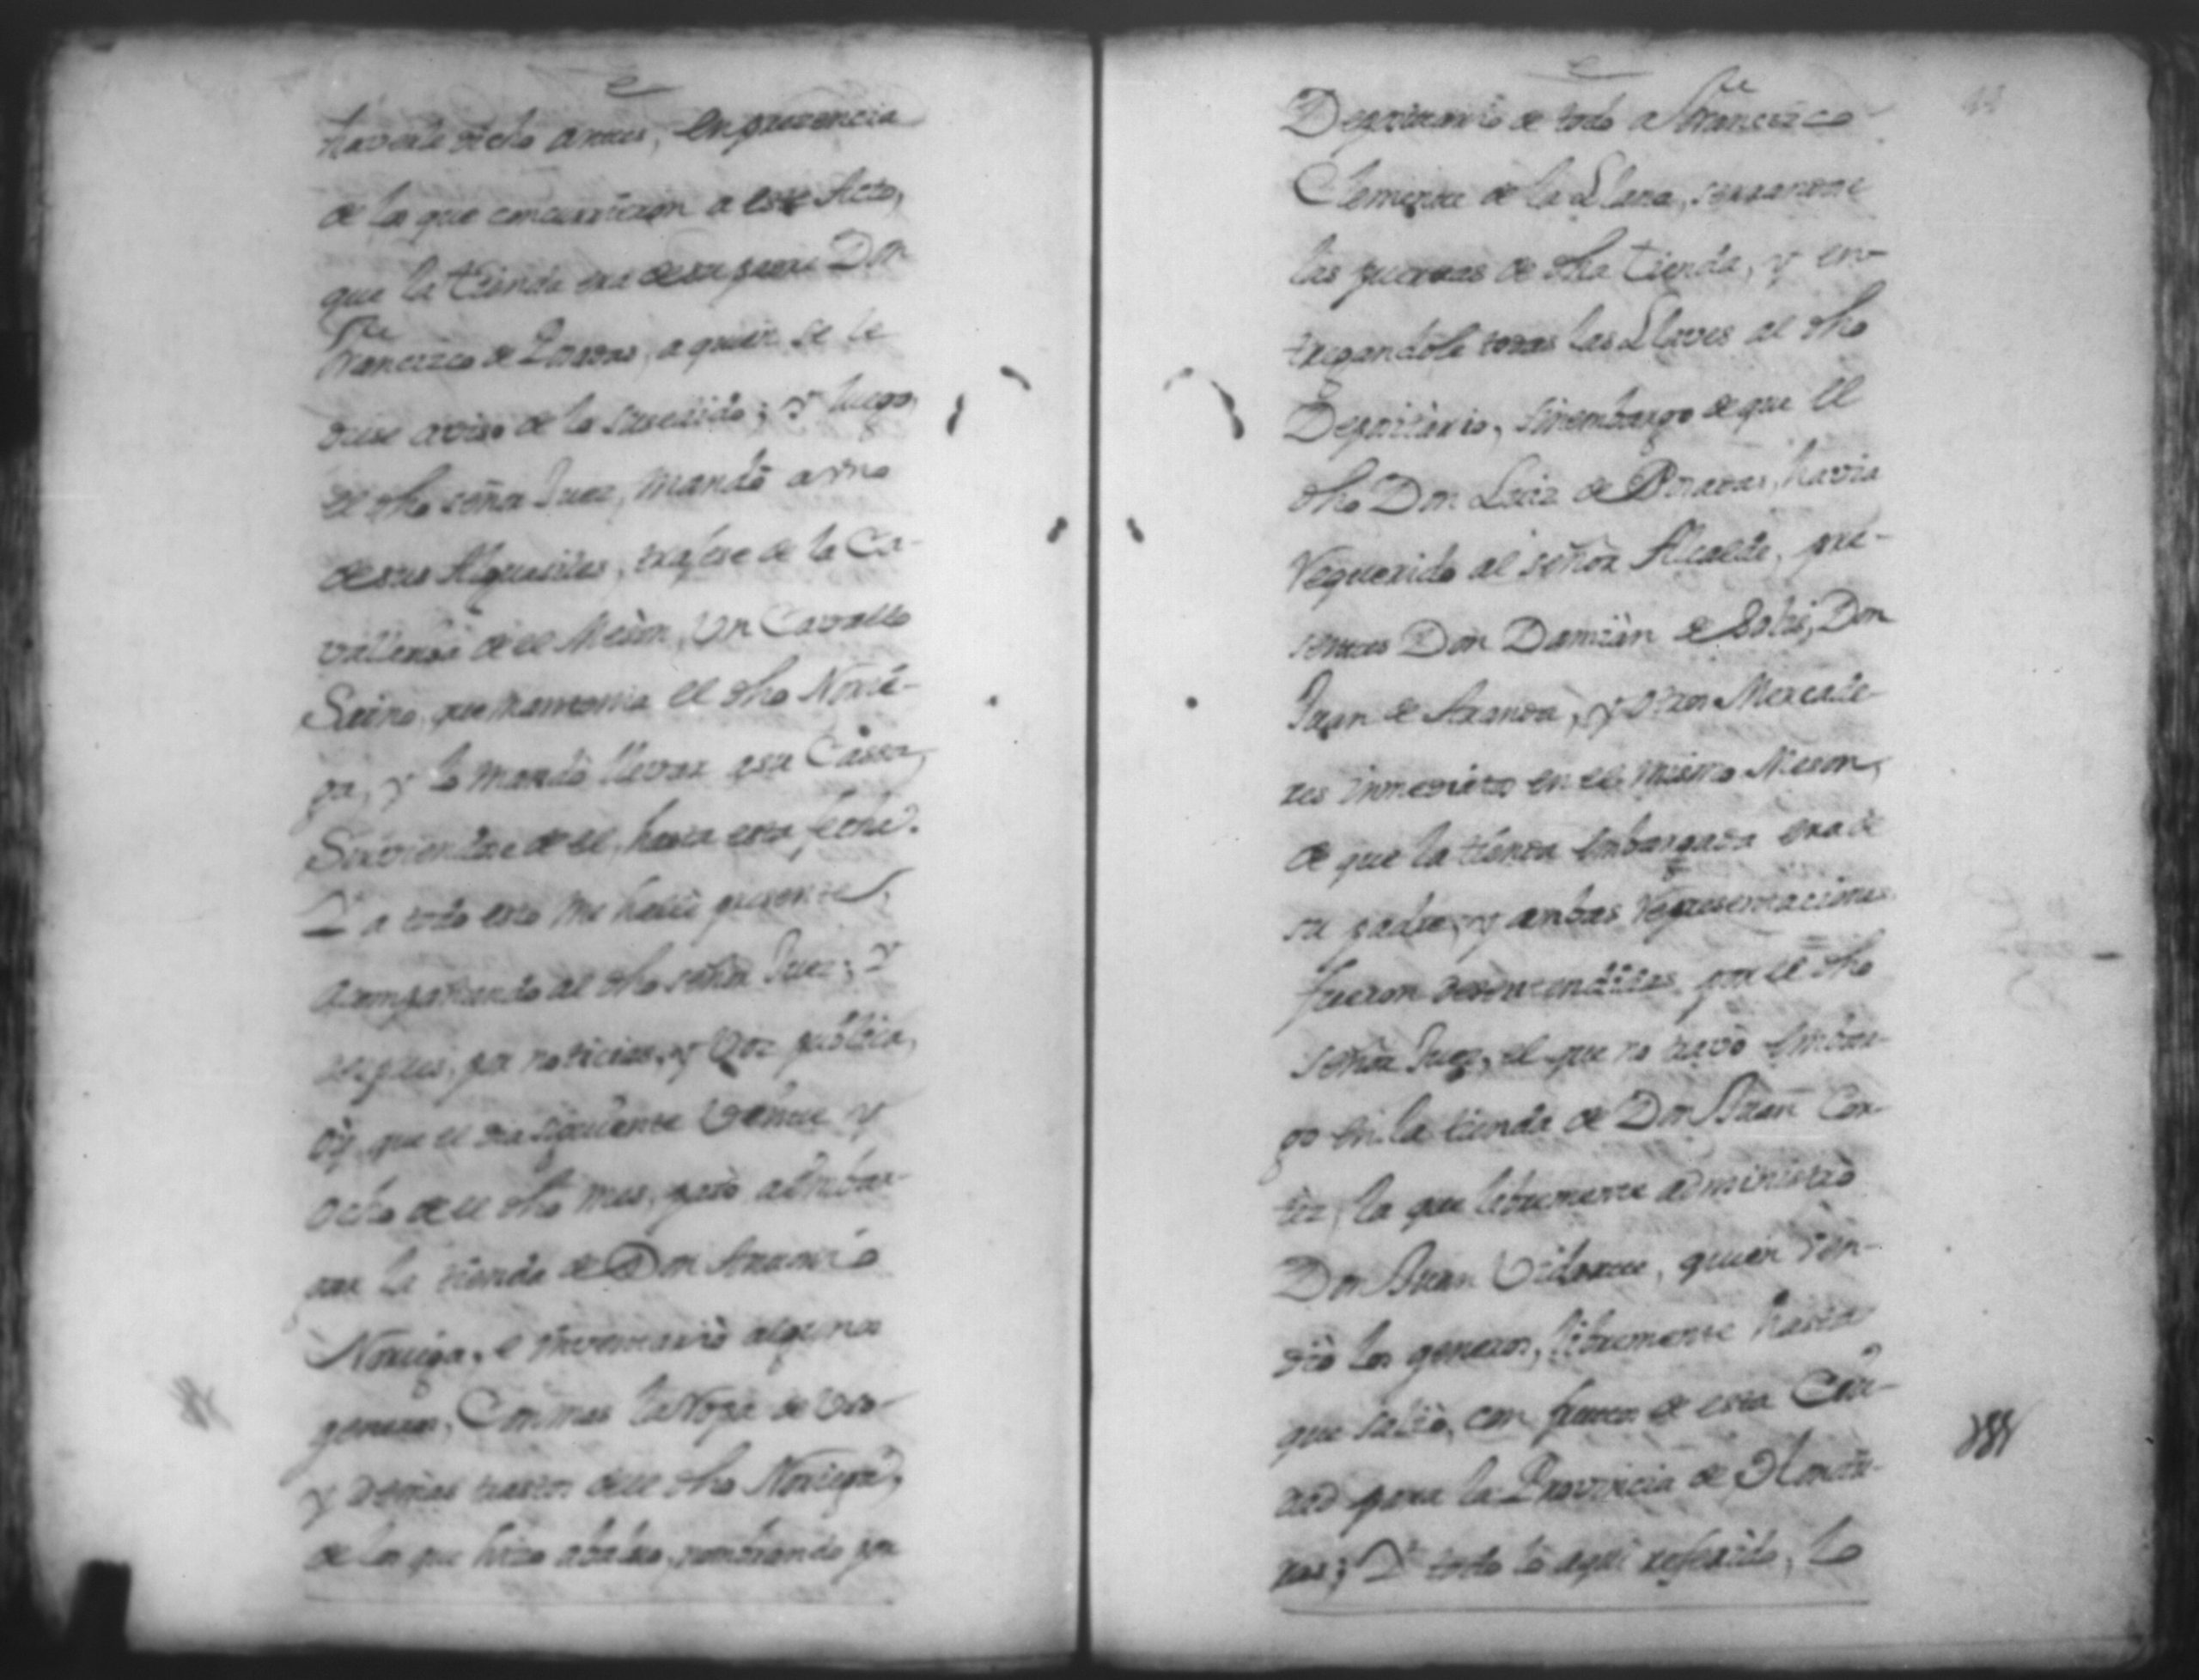 haverle dicho antes, en presencia
de los que concurrieron a este Acto,
que la tienda era de su padre Don
Francisco de Porras, a quien se le
diese aviso de lo susedido; y luego
el dho señor Juez, mandò a vno
de sus Alguasiles, trajese de la Ca-
valleriza de el Meson, Vn Cavallo
Saino, que mantenia el dho Norie-
ga, y lo mandò llevar a su Cassa,
Sirviendose de el, hasta esta fecha.
Y a todo esto me hallè presente,
acompañando al dho señor Juez; y
despues, por noticias, y Voz publica,
oÿ, que el dia siguiente Veinte y
ocho de el dho mes, pasò a embar-
gar la tienda de Don Antonio
Noriega, e inventariò algunos
generos, Con mas la Ropa de Vso
y demas trastos de el dho Noriega,
de los que hizo abaluo, nombrando por
Depositario de todo a Francisco
Clemente de la Llana, serrandose
las puertas de dha tienda, y en-
tregandole todas las Llaves al dho
Depositario, sinembargo de que el
dho Don Luiz de Porras, havia
Requerido al señor Alcalde, pre-
sentes Don Damian de Solis, Don
Juan de Aranda, y otros Mercade-
res inmediatos en el mismo Meson,
de que la tienda embargada era de
su padre, y ambas Representaciones
fueron desentendidas por el dho
señor Juez, el que no travò embar-
go en la tienda de Don Juan Cor-
tez, la que libremente administrò
Don Juan Vidaurre, quien ven-
diò los generos, libremente hasta
que saliò, con fierros de esta Ciu-
dad para la Provincia de Hondu-
ras; Y todo lo aqui referido, lo